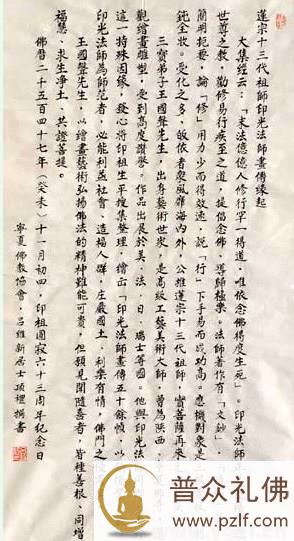 蓮宗十三代祖師印光法師畫傳緣起
大集經云：「末法億億人修行罕一得道，唯依念佛得度生死。」印光法師正
世尊之教，勸修易行疾至之道，提倡念佛，導歸極樂。法師著作有「文鈔」
簡明扼要，論「修」用力少而得效速，說「行」下手易而成功高。應機對象是三
鈍全收。受化之多，皈依者衆風靡海內外，公推蓮宗十三代祖師，實菩薩再來
三寶弟子王國聲先生，出身藝術世家，是高級工藝美術大師，曾為陝西
觀繪畫雕塑，受到高度讚譽。作品出展於美、法、日、瑞士等國。他與印光法
這一特殊因緣，發心將印祖生平搜集整理，繪出「印光法師畫傳五十餘幀，以
印光法師為師范者，必能利益社會、造福人群，莊嚴國土、利樂有情，佛門之
王國聲先生，以繪畫藝術弘揚佛法的精神難能可貴，但願見聞隨喜者，皆種善根、同增
福慧、求生淨土、共證菩提。
佛曆二千五百四十七年（癸未）十一月初四，印祖圓寂六十三周年紀念日
寧夏佛教協會，呂維新居士頂禮撰書
普众礼佛
www.pzlf.com